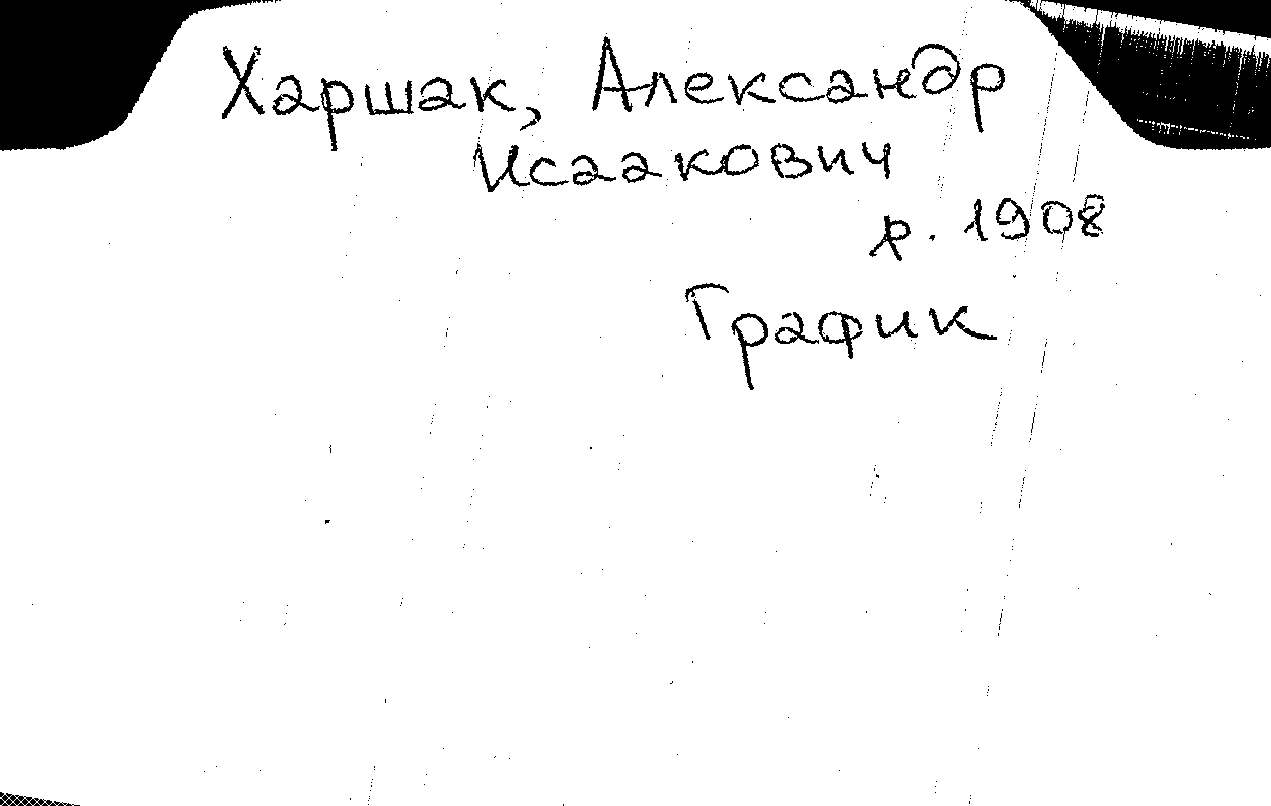 Харшак, Александр
Исаакович
р. 1908
График